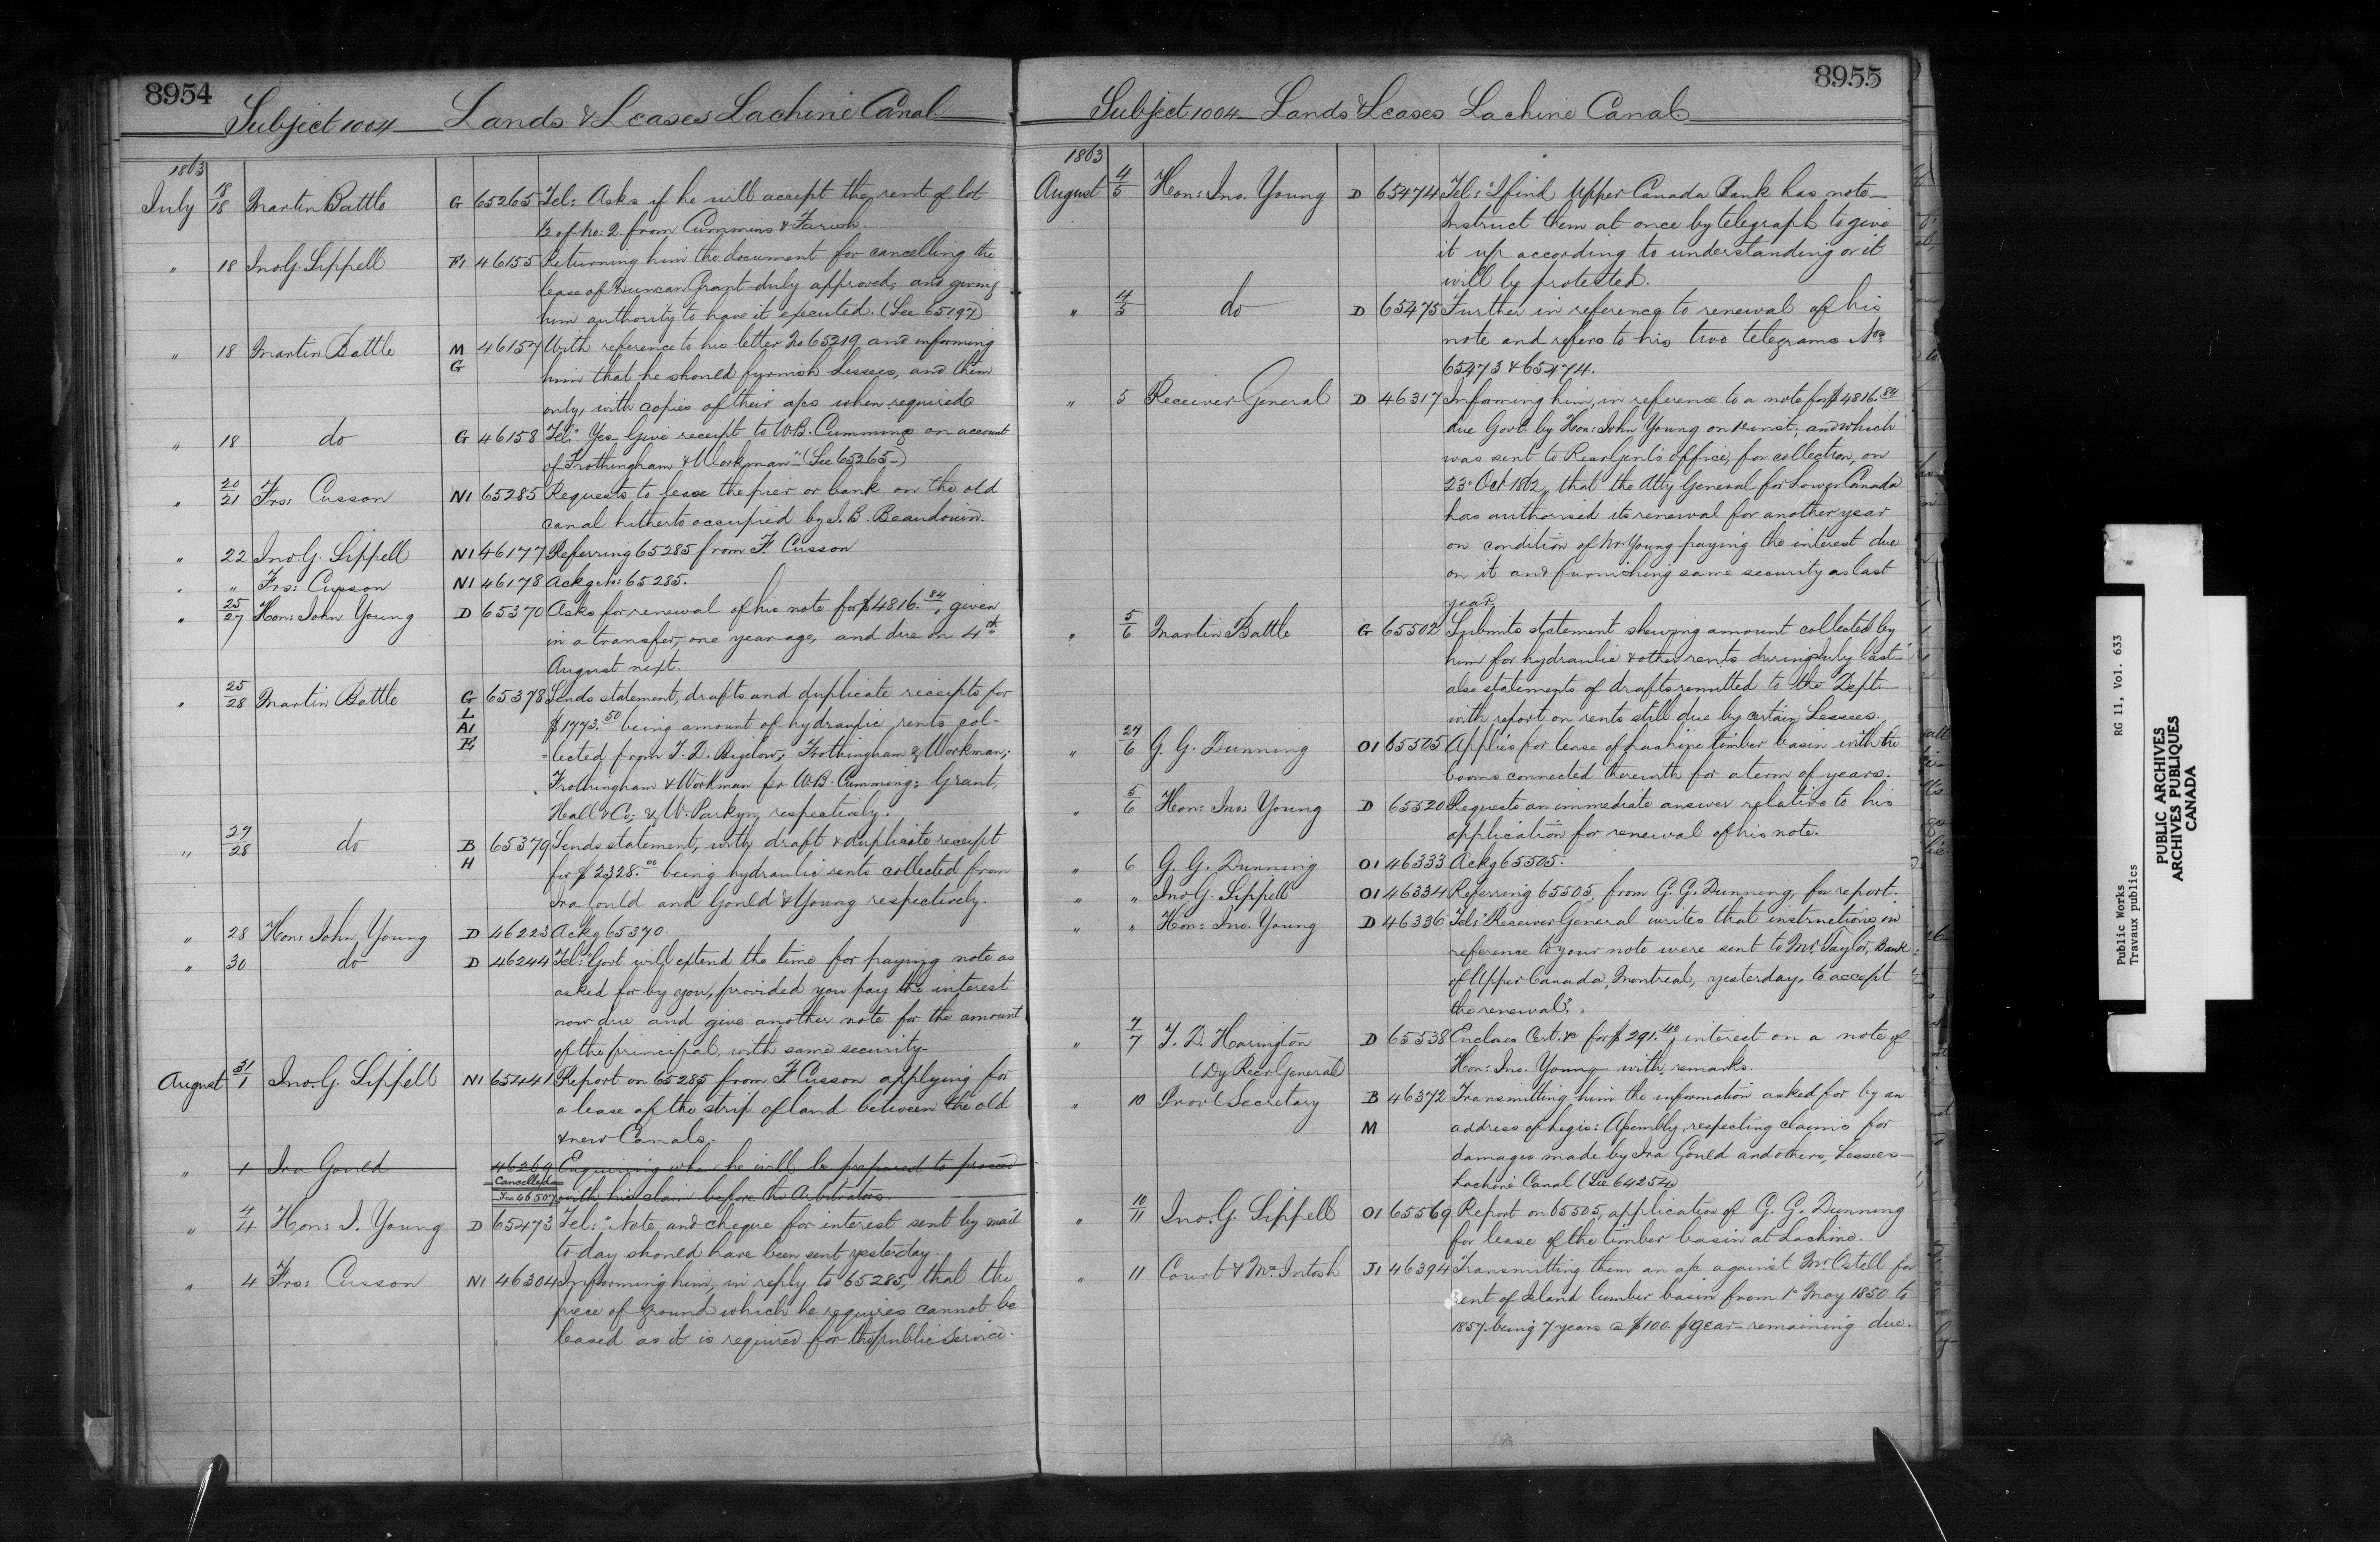 8954
Subject 1004 Lands & Leases Lachine Canal
1863
July 18/18 Martin Battle G 65265 Tel: Asks if he will accept the rent of lot
½ of No: 2 from Cummins & Farish.
" 18 Jno G. Sippell 46155 Returning him the document for cancelling the
lease of Duncan Grant duly approved, and giving
him authority to have it executed. (See 65197)
" 18 Martin Battle M G 46157 With reference to his letter No 65219 and informing
him that he should furnish Lessees, and them
only, with copies of their a/cs when required
" 18 do G 46158 Tel: "Yes Give receipt to W.B. Cumming on account
of Frothingham & Workman" (See 65265)
" 20/21 Frs: Cusson N1 65285 Requests to lease the pier or bank on the old
canal hitherto occupied by J. B. Beaudouin.
" 22 Jno G. Sippell N1 46177 Referring 65285 from F. Cusson
" " Frs: Cusson N1 46178 Ackg No: 65285.
" 25/27 Hon: John Young D 65370 Asks for renewal of his note for $4816.84, given
in a transfer, one year ago, and due on 4th
August next.
" 25/28 Martin Battle G L A1 E 65378 Sends statement, drafts and duplicate receipts for
$1773.50 being amount of hydraulic rents col-
-lected from T. D. Bigelow; Frothingham & Workman;
Frothingham & Workman for W.B. Cumming; Grant,
Hall & Co; & W. Parkyn, respectively.
" 27/28 do B H 65379 Sends statement, with draft & duplicate receipt
for $2328.00 being hydraulic rents collected from
Ira Gould and Gould & Young respectively.
" 28 Hon: John Young D 46223 Ackg 65370.
" 30 do D 46244 Tel: "Govt. will extend the time for paying note as
asked for by you, provided you pay the interest
now due and give another note for the amount
of the principal, with same security.
August 31/1 Jno. G. Sippell N1 65441 Report on 65285 from F Cusson applying for
a lease of the strip of land between the old
& new Canals.
" 1 Ira Gould 46269 Enquiring when he will be prepared to proceed
Cancelled See 46507 with his claim before the Arbitrators.
" 4/4 Hon: J. Young D 65473 Tel: "Note and cheque for interest sent by mail
to day should have been sent yesterday.
" 4 Frs: Cusson N1 46304 Informing him, in reply to 65285, that the
piece of ground which he requires cannot be
leased as it is required for the public service.
8955
Subject 1004 Lands & Leases Lachine Canal
1863
August 4/5 Hon: Jno. Young D 65474 Tel: "I find Upper Canada Bank has note
Instruct them at once by telegraph to give
it up according to understanding or it
will be protested.
" 4/5 do D 65475 Further in reference to renewal of his
note and refers to his two telegrams Nos
65473 & 65474.
" 5 Receiver General D 46317 Informing him, in reference to a note for $4816.84
due Govt. by Hon: John Young on inst; and which
was sent to Recr Genl's office, for collection, on
23d Oct 1862, that the Atty General for Lower Canada
has authorised its renewal for another year
on condition of Mr Young paying the interest due
on it and furnishing same security as last
year.
" 5/6 Martin Battle G 65502 Submits statement shewing amount collected by
him for hydraulic & other rents during July last
also statements of drafts remitted to the Dept.
with report on rents still due by certain Lessees.
" 27/6 G. G. Dunning O1 65505 Applies for lease of Lachine timber basin with the
booms connected therewith for a term of years.
" 5/6 Hon: Jno: Young D 65520 Requests an immediate answer relative to his
application for renewal of his note.
" 6 G. G. Dunning O1 46333 Ackg 65505.
" " Jno G. Sippell O1 46334 Referring 65505, from G. G. Dunning, for report.
" " Hon: Jno. Young D 46336 Tel: "Receiver General writes that instructions in
reference to your note were sent to Mr. Taylor, Bank
of Upper Canada, Montreal, yesterday, to accept
the renewal".
" 7/7 T. D. Harington D 65538 Encloses Cert. &c for $291.40, interest on a note of
(Dy Recr General) Hon: Jno. Young with remarks.
" 10 Provl Secretary B M 46372 Transmitting him the information asked for by an
address of Legis: Assembly, respecting claims for
damages made by Ira Gould and others, Lessees
Lachine Canal (See 64254)
" 10/11 Jno. G. Sippell O1 65569 Report on 65505, application of G. G. Dunning
for lease of the timber basin at Lachine.
" 11 Court & McIntosh J1 46394 Transmitting them an a/c against Mr. Ostell for
rent of Island lumber basin from 1st May 1850 to
1857 being 7 years @ $100. p year remaining due.
Public Works RG 11, Vol. 633
Travaux publics
PUBLIC ARCHIVES
ARCHIVES PUBLIQUES
CANADA